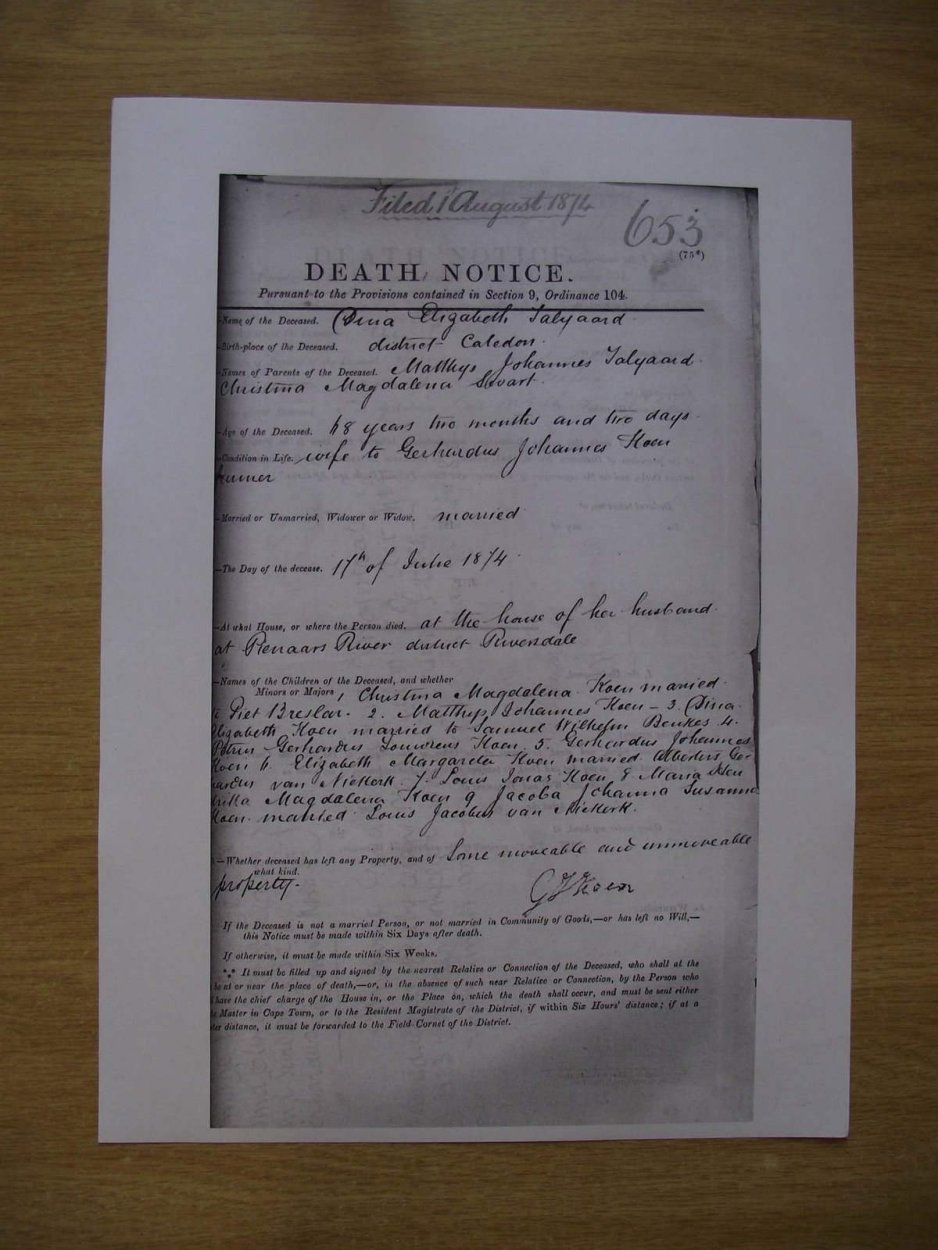 Filed 1 August 1874
653
(75*)
DEATH NOTICE.
Pursuant to the Provisions contained in Section 9, Ordinance 104.
—Name of the Deceased. Dina Elizabeth Talyaard
—Birth-place of the Deceased. district Caledon.
—Names of Parents of the Deceased. Matthys Johannes Talyaard
Christina Magdalena Swart.
—Age of the Deceased. 68 years two months and two days
—Condition in Life. wife to Gerhardus Johannes Koen
—Married or Unmarried, Widower or Widow. married
—The Day of the decease. 17th of June 1874
—At what House, or where the Person died. at the house of her husband
at River district Riversdale
—Names of the Children of the Deceased, and whether
Minors or Majors, 1 Christina Magdalena Koen married
Piet Breslar. 2. Matthys Johannes Koen – 3. Dina
Elizabeth Koen married to Samuel Wilhelm Beukes 4.
Petrus Gerhardus Louwrens Koen, 5. Gerhardus Johannes
Koen 6 Elizabeth Margareta Koen married Albertus Ger
hardus van Niekerk. 7. Louis Jonas Koen, 8 Maria Hen
drika Magdalena Koen 9 Jacoba Johanna Susanna
Koen. married Louis Jacobus van Niekerk.
—Whether deceased has left any Property, and of Some moveable and unmoveable
what kind.
property.
GJKoen
If the Deceased is not a married Person, or not married in Community of Goods,—or has left no Will,—
this Notice must be made within Six Days after death.
If otherwise, it must be made within Six Weeks.
*** It must be filled up and signed by the nearest Relative or Connection of the Deceased, who shall at the
be at or near the place of death,—or, in the absence of such near Relative or Connection, by the Person who
have the chief charge of the House in, or the Place on, which the death shall occur, and must be sent either
Master in Cape Town, or to the Resident Magistrate of the District, if within Six Hours' distance; if at a
distance, it must be forwarded to the Field-Cornet of the District.